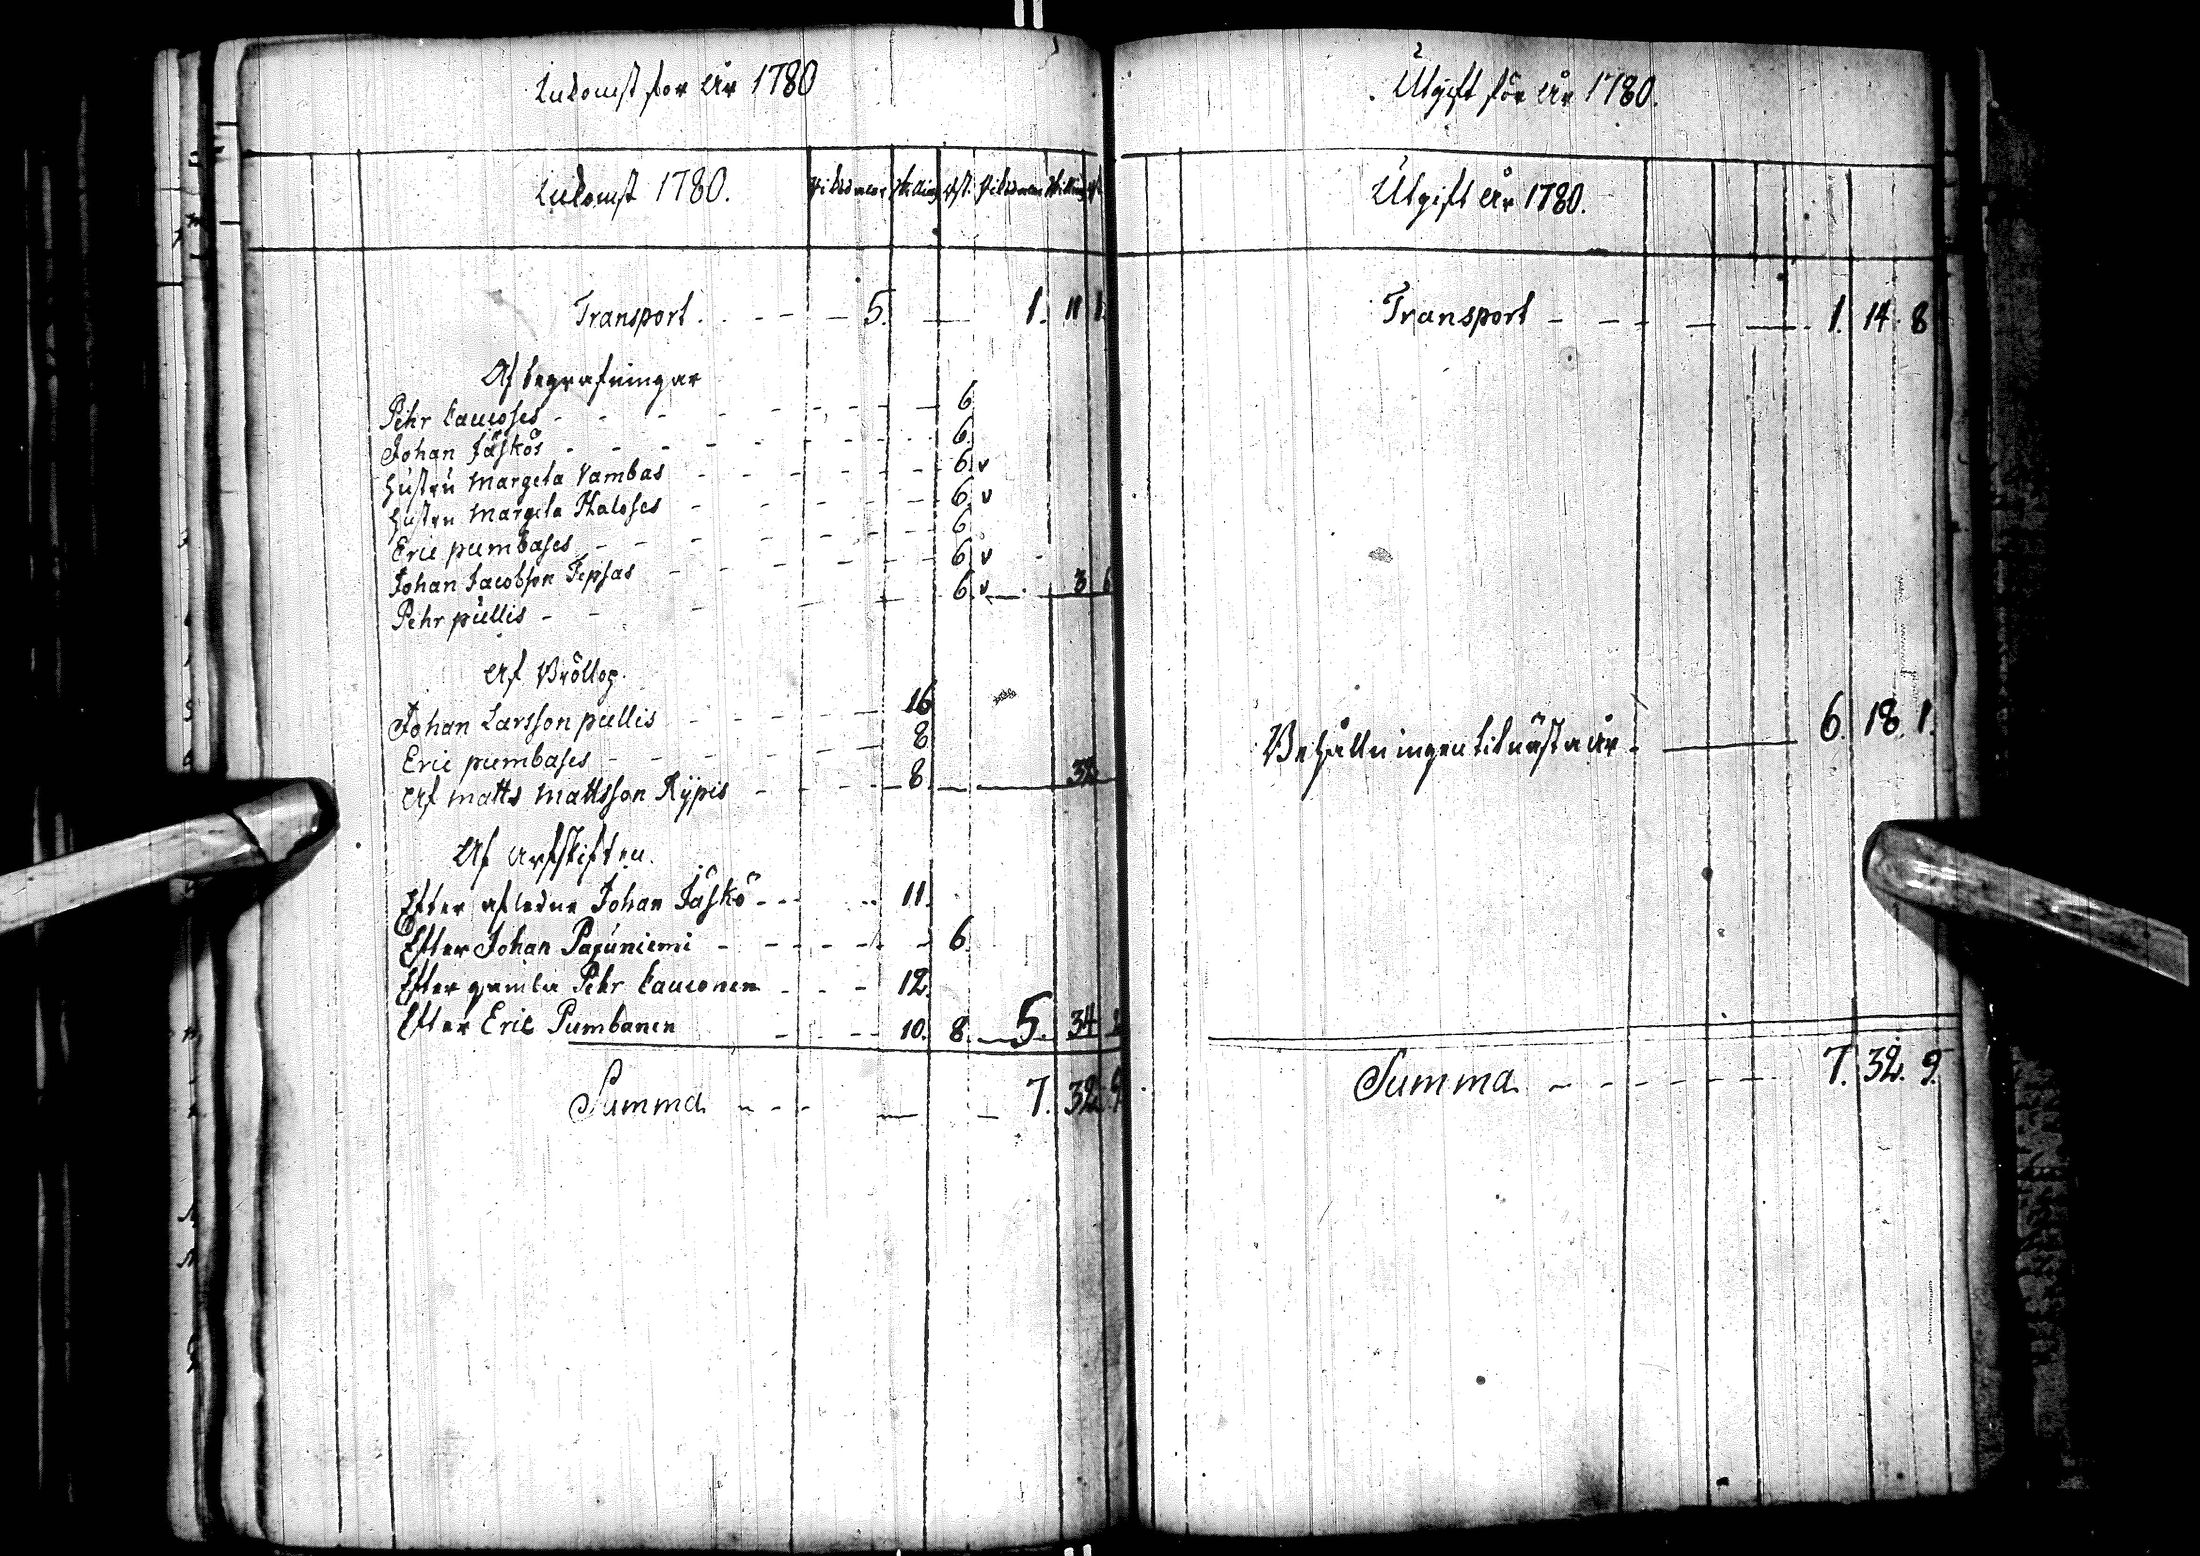 Inkomst for År 1780
Inkomst 1780. Riksdaler Skilling rst. Riksdaler Skilling
Transport . . - - - 5. — 1. 11 1.
Af begrafningar
Pehr Cauoses - - - 6
Johan Jäskös - - - 6.
Hustru Margeta Vambas - - - 6 v
Hustru Margeta Haloses - - - 6 v
Eric pumbases - - - 6
Johan Jacobsson Tepsas - - - 6 v
Pehr pullis - - - 6 v — 3 6
Af Bröllop.
Johan Larsson pullis - - - 16
Eric pumbases - - - 8
Af Matts Mattsson Kypis - - - 8 — 32
Af Arfskiften.
Efter afledne Johan Jäskö - - - 11.
Efter Johan Papuniemi - - - 6.
Efter gamla Pehr Cauconen - - - 12.
Efter Eric Pumbanen - - - 10. 8. — 5. 34 2
Summa - - - 7. 32 9
Utgift för År 1780.
Utgift År 1780.
Transport - - - 1. 14. 8
Behållningen til nästa År - — 6. 18. 1.
Summa - - - 7. 32. 9.